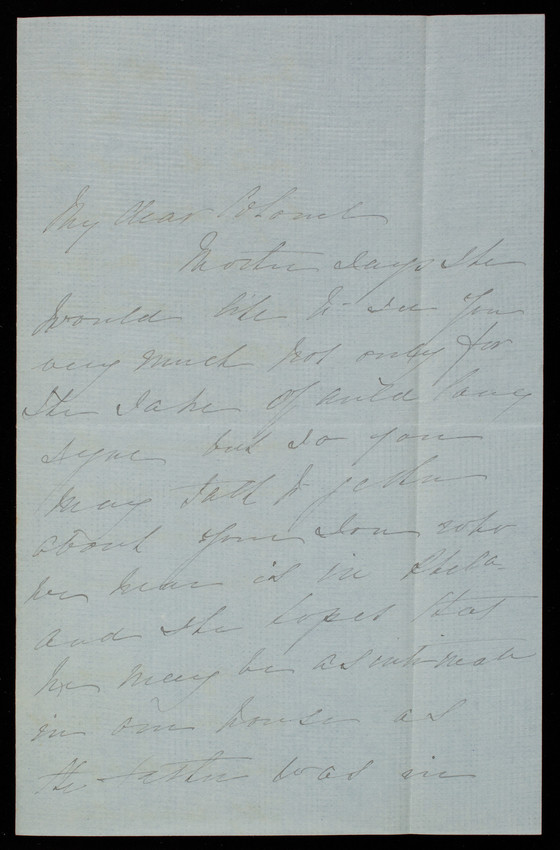 My dear Colonel
Mother says she
would like to see you
very much not only for
the sake of auld lang
syne but so you
may talk together
about your son who
we hear is in Phila-
and she hopes that
he may be as intimate
in our house as
the father was in